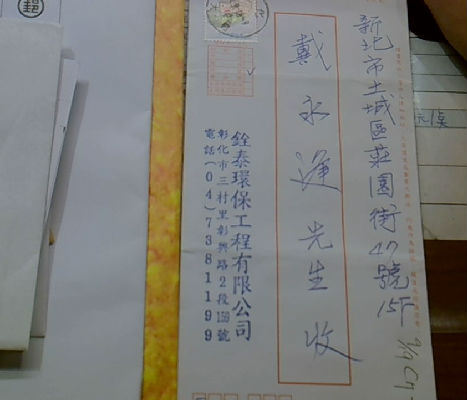 新北市土城區莊園街47號15F
戴永逢先生收
銓泰環保工程有限公司
彰化市三村里彰興路2段159號
電話(04)7381199
郵